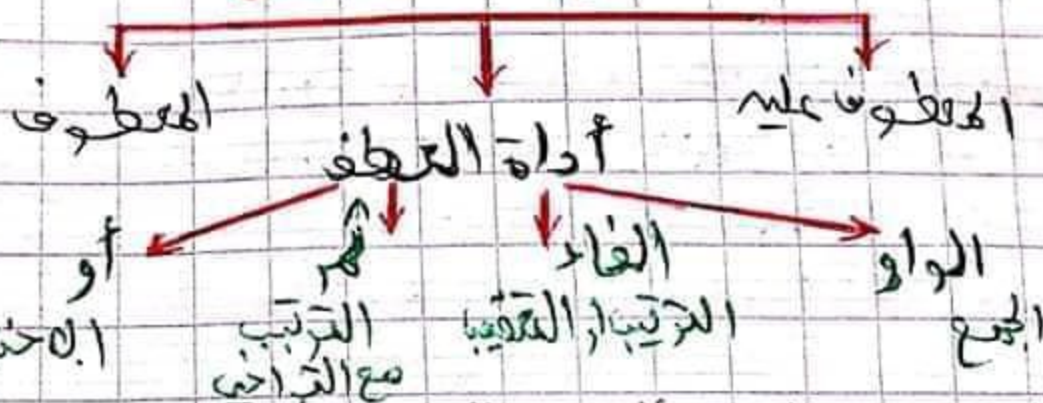 المعطوف عليه
أداة العطف
المعطوف
الواو
الجمع
الفاء
الترتيب او التعقيب
ثم
الترتيب
مع التراخي
أو